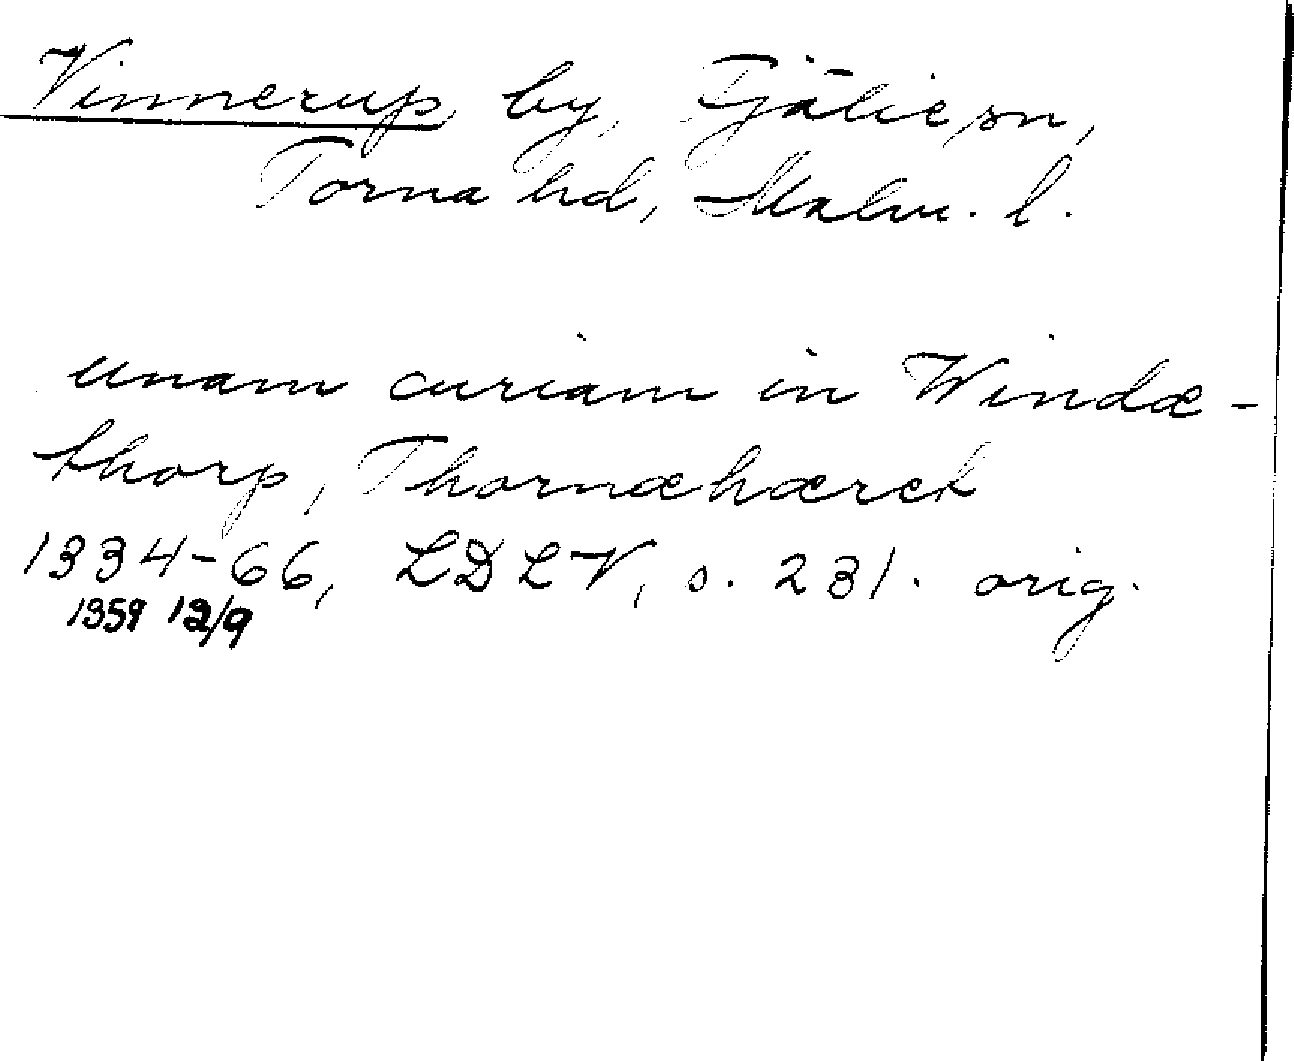 Vinnerup, by, Fjälie sn,
Torna hd, Malm. l.
unam curiam in Windæ-
thorp, Thornæhæret
1334-66, LDLV, s. 231. orig.
1359 12/9